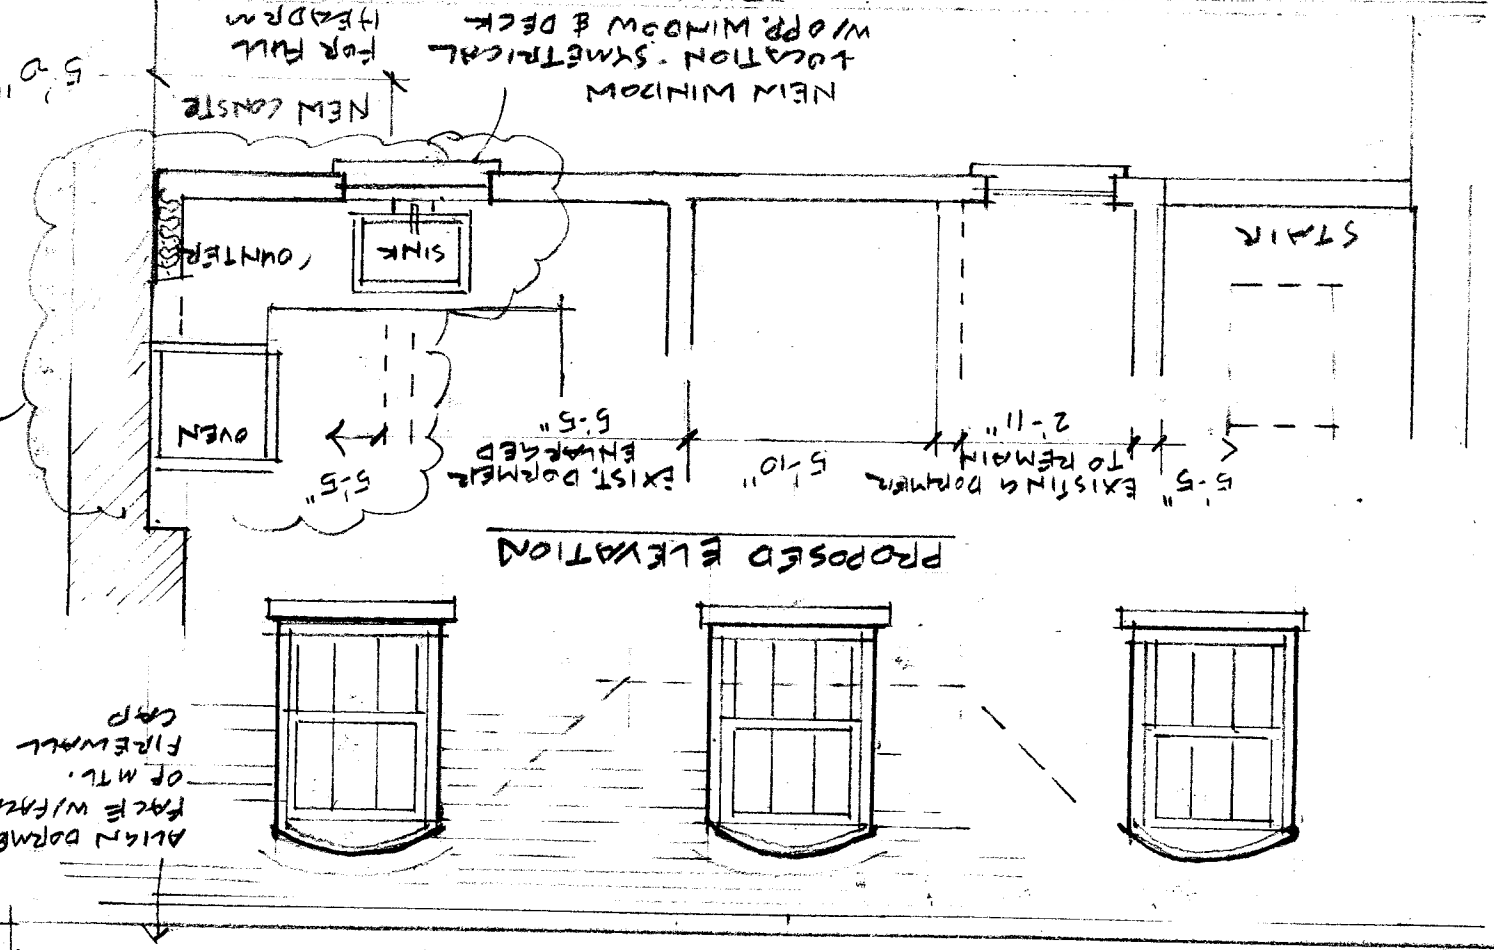 ALIGN DORME
FACE W/FAC
OF MTL.
FIREWALL
CAP
PROPOSED ELEVATION
5'-5"
EXISTING DORMER
TO REMAIN
2'-11"
5'-10"
EXIST. DORMER
ENLARGED
5'-5"
5'-5"
OVEN
STAIR
SINK
COUNTER
NEW WINDOW
LOCATION - SYMETRICAL
W/ OPP. WINDOW & DECK
NEW CONSTR
FOR FULL
HEADRM
5'-0"